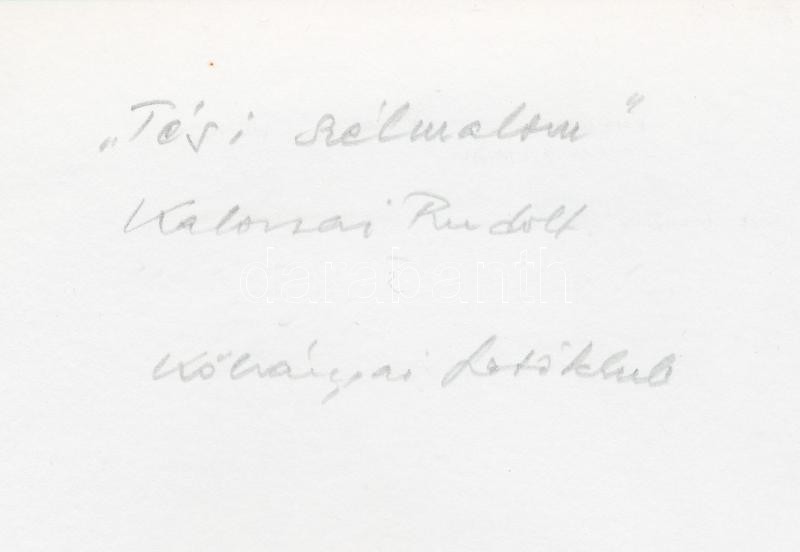 „Tési szélmalom"
Kalocsai Rudolf
darabanth
Kőbányai Fotóklub